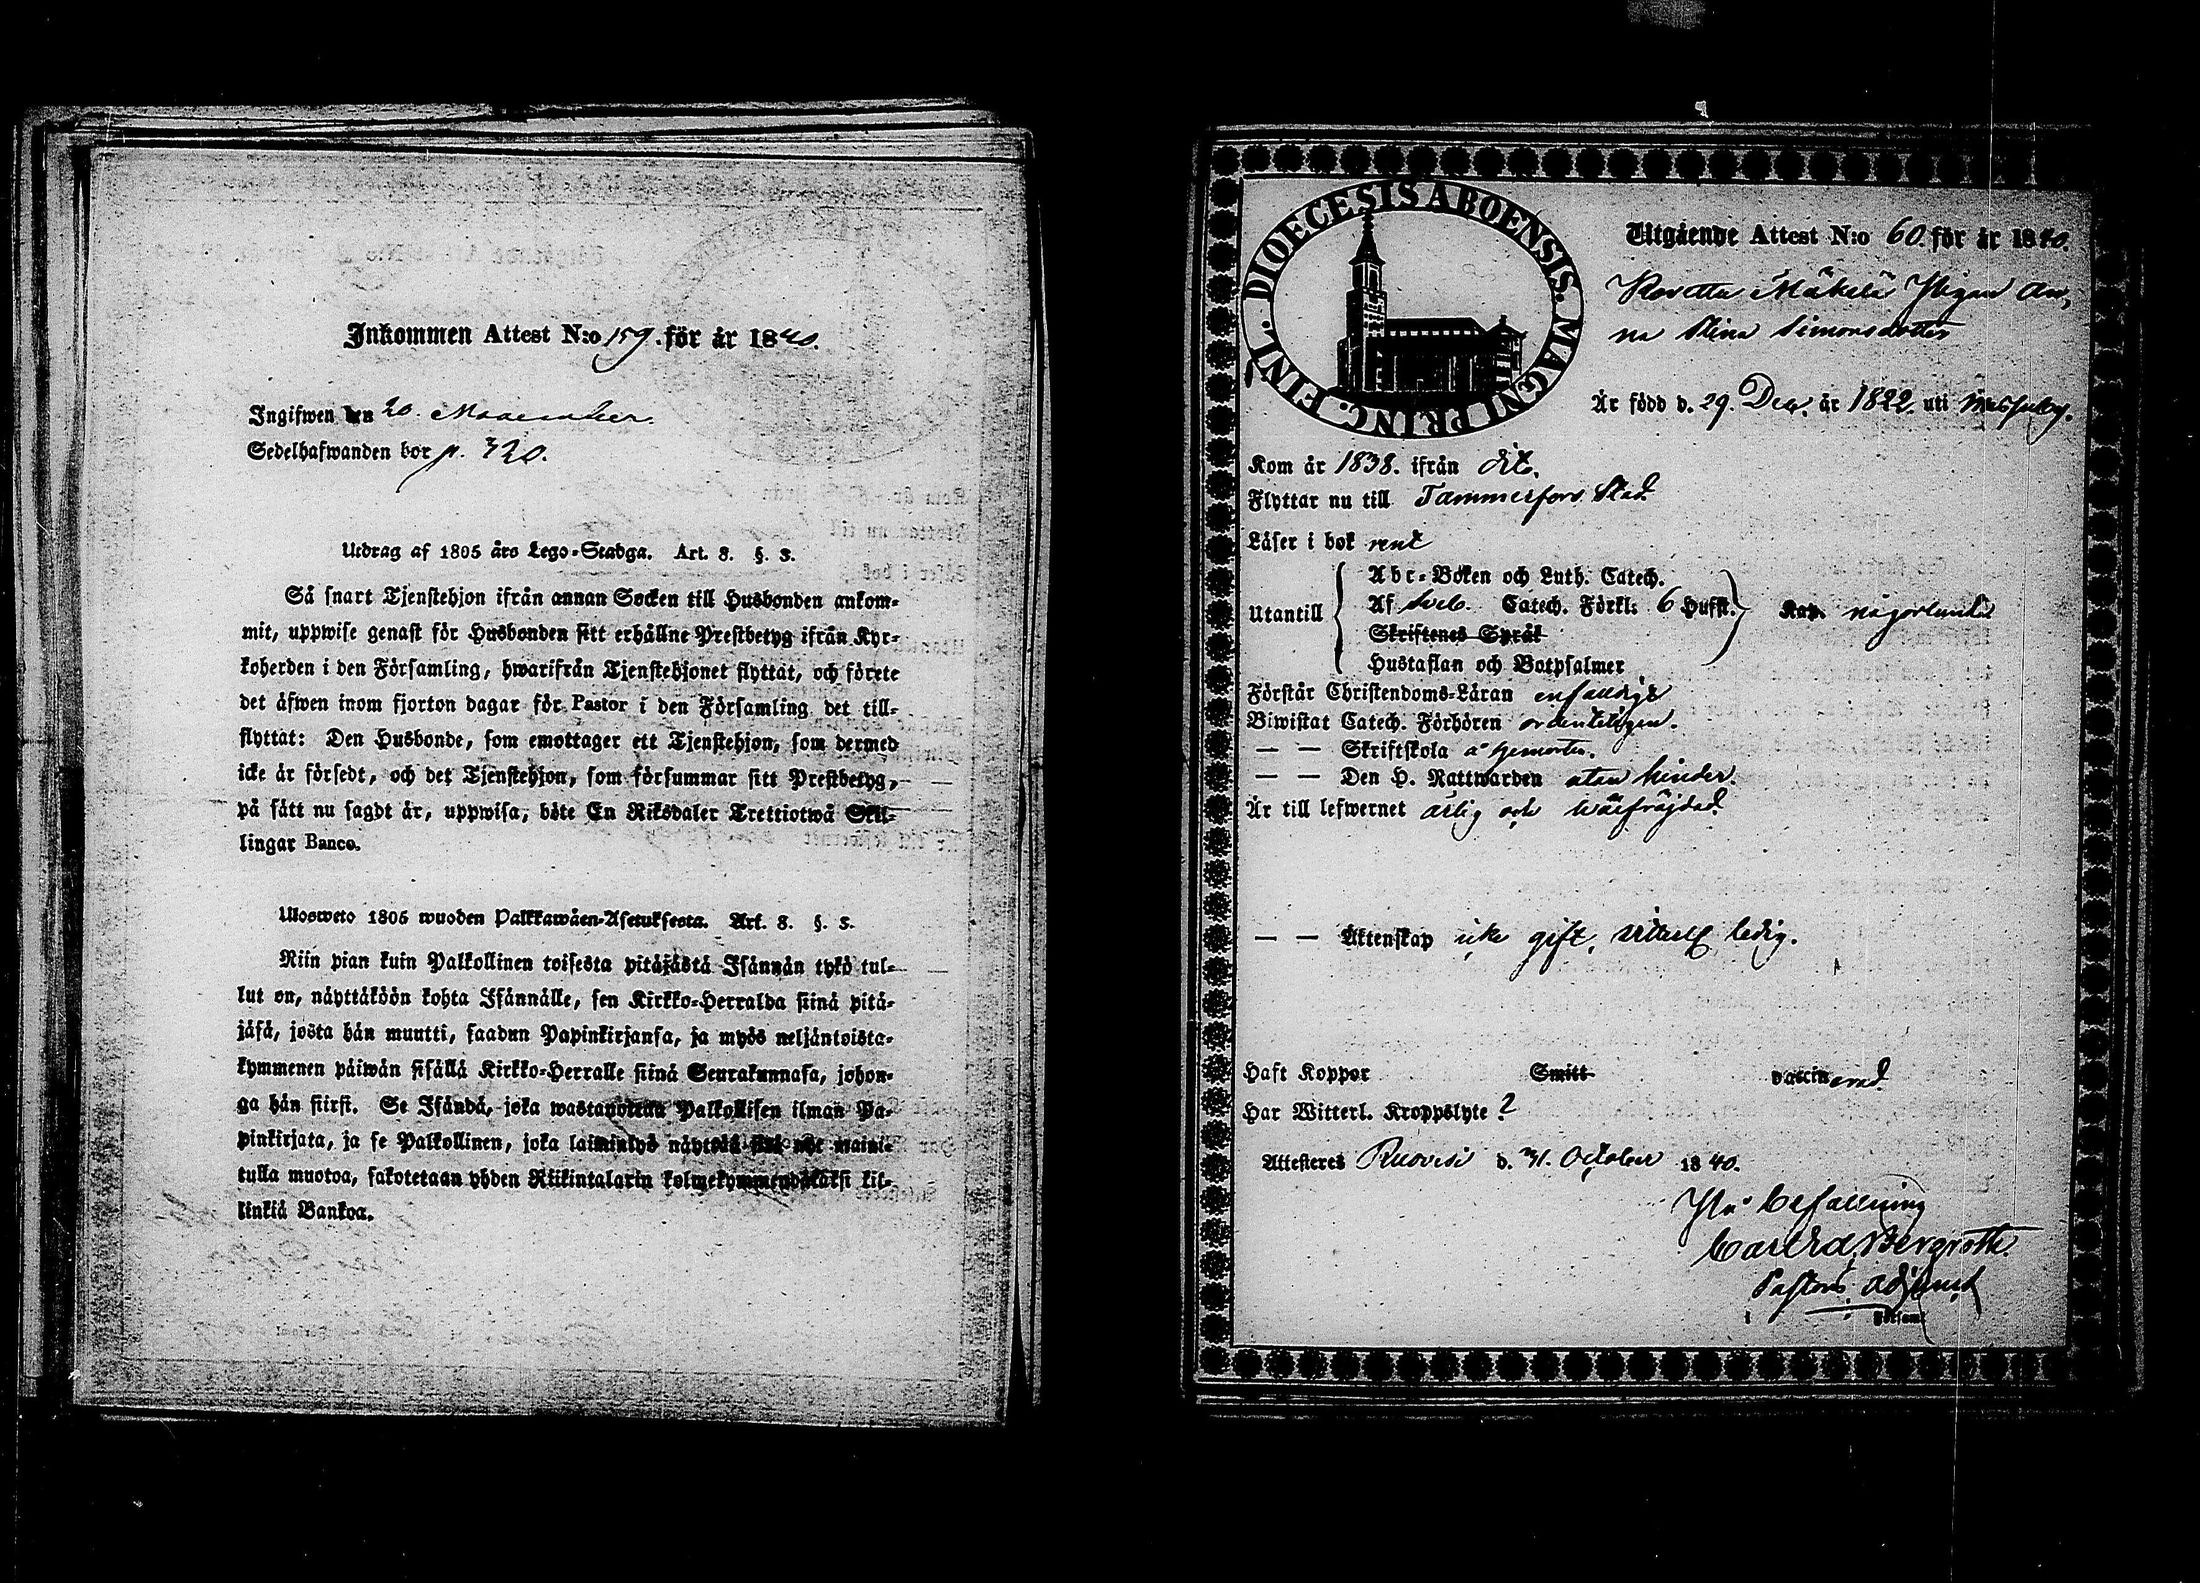 Inkommen Attest N:o 159. för år 1840.
Ingifwen den 20. November.
Sedelhafwanden bor p. 320.
Utdrag af 1805 års Lego-Stadga. Art. 8. §. 3.
Så snart Tjenstehjon ifrån annan Socken till Husbonden ankom-
mit, uppwise genast för Husbonden sitt erhållne Prestbetyg ifrån Kyr-
koherden i den Församling, hwarifrån Tjenstehjonet flyttat, och förete
det äfwen inom fjorton dagar för Pastor i den Församling det till-
flyttat: Den Husbonde, som emottager ett Tjenstehjon, som dermed
icke är försedt, och det Tjenstehjon, som försummar sitt Prestbetyg,
på sätt nu sagdt är, uppwisa, böte En Riksdaler Trettiotwå Skil-
lingar Banco.
Ulosweto 1805 wuoden Palkkawäen-Asetuksesta. Art. 8. §. 3.
Niin pian kuin Palkollinen toisesta pitäjästä Isännän tykö tul-
lut on, näyttäköön kohta Isännälle, sen Kirkko-Herralda siinä pitä-
jäsä, josta hän muutti, saadun Papinkirjansa, ja myös neljäntoista-
kymmenen päiwän sisällä Kirkko-Herralle siinä Seurakunnasa, johon-
ga hän siirsi. Se Isändä, joka wastanottaa Palkollisen ilman Pa-
pinkirjata, ja se Palkollinen, joka laiminlyö näyttää sitä nyt maini-
tulla muotoa, sakotetaan yhden Riikintalarin kolmekymmendäkaksi kil-
linkiä Bankoa.
DIOECESIS ABOENSIS. MAGNI PRINC. FINL.
Utgående Attest N:o 60. för år 1840.
Mäkelä Pigan An-
na Stina Simonsdotter
Är född d. 29. Dec. år 1822. uti Messuby.
Kom år 1838. ifrån dit.
Flyttar nu till Tammerfors Stad
Läser i bok rent
Utantill
Abc-Boken och Luth. Catech.
Af Sveb. Catech. Förkl: 6 Hufst.
Skriftenes Språk
Hustaflan och Botpsalmer
Kap. någorlunda
Förstår Christendoms-Läran enfaldigt
Biwistat Catech. Förhören ordenteligen.
— — Skriftskola å gemorter.
— — Den H. Nattwarden utan hinder.
Är till lefwernet ärlig och wälfräjdad.
— — Äktenskap icke gift, ledig.
Haft Koppor Smitt vaccinerad
Har Witterl. Kroppslyte ?
Attesteres Ruovesi d. 31. October 1840.
På befallning
Carl Ed. Bergroth.
Pastors Adjunct
i Församl.